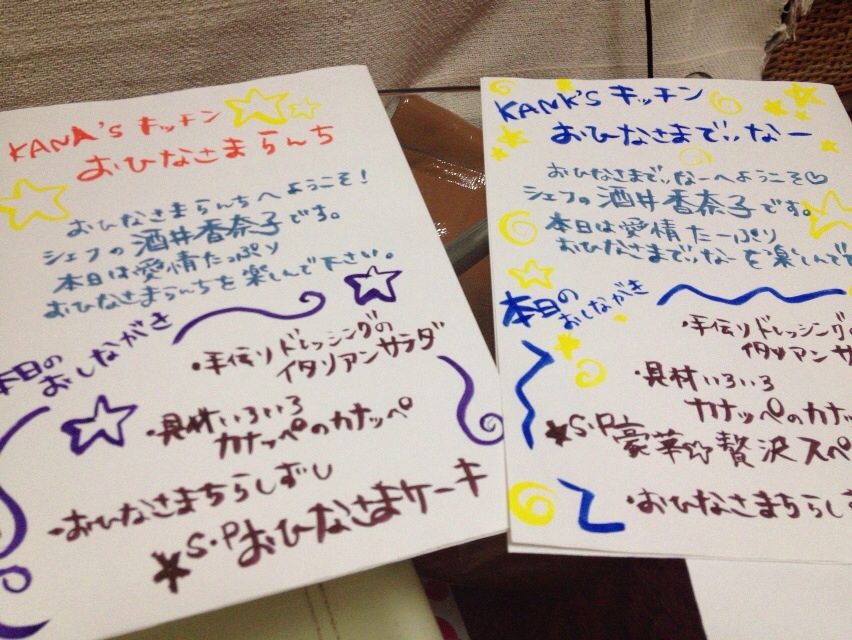 KANA'S キッチン
おひなさまらんち
おひなさまらんちへようこそ!
シェフの酒井香奈子です。
本日は愛情たっぷり
おひなさまらんちを楽しんで下さい。
本日の
おしながき
・手伝りドレッシングの
イタリアンサラダ
・具材いろいろ
カナッペのカナッペ
・おひなさまちらしずし
★S・Pおひなさまケーキ
KANK'S キッチン
おひなさまでぃなー
おひなさまでぃなーへようこそ♡
シェフの酒井香奈子です。
本日は愛情たーっぷり
おひなさまでぃなーを楽しんで
本日の
おしながき
・手伝りドレッシングの
イタリアンサ
・具材いろいろ
カナッペのカナッ
★S・P豪華贅沢スペ
・おひなさまちらしず